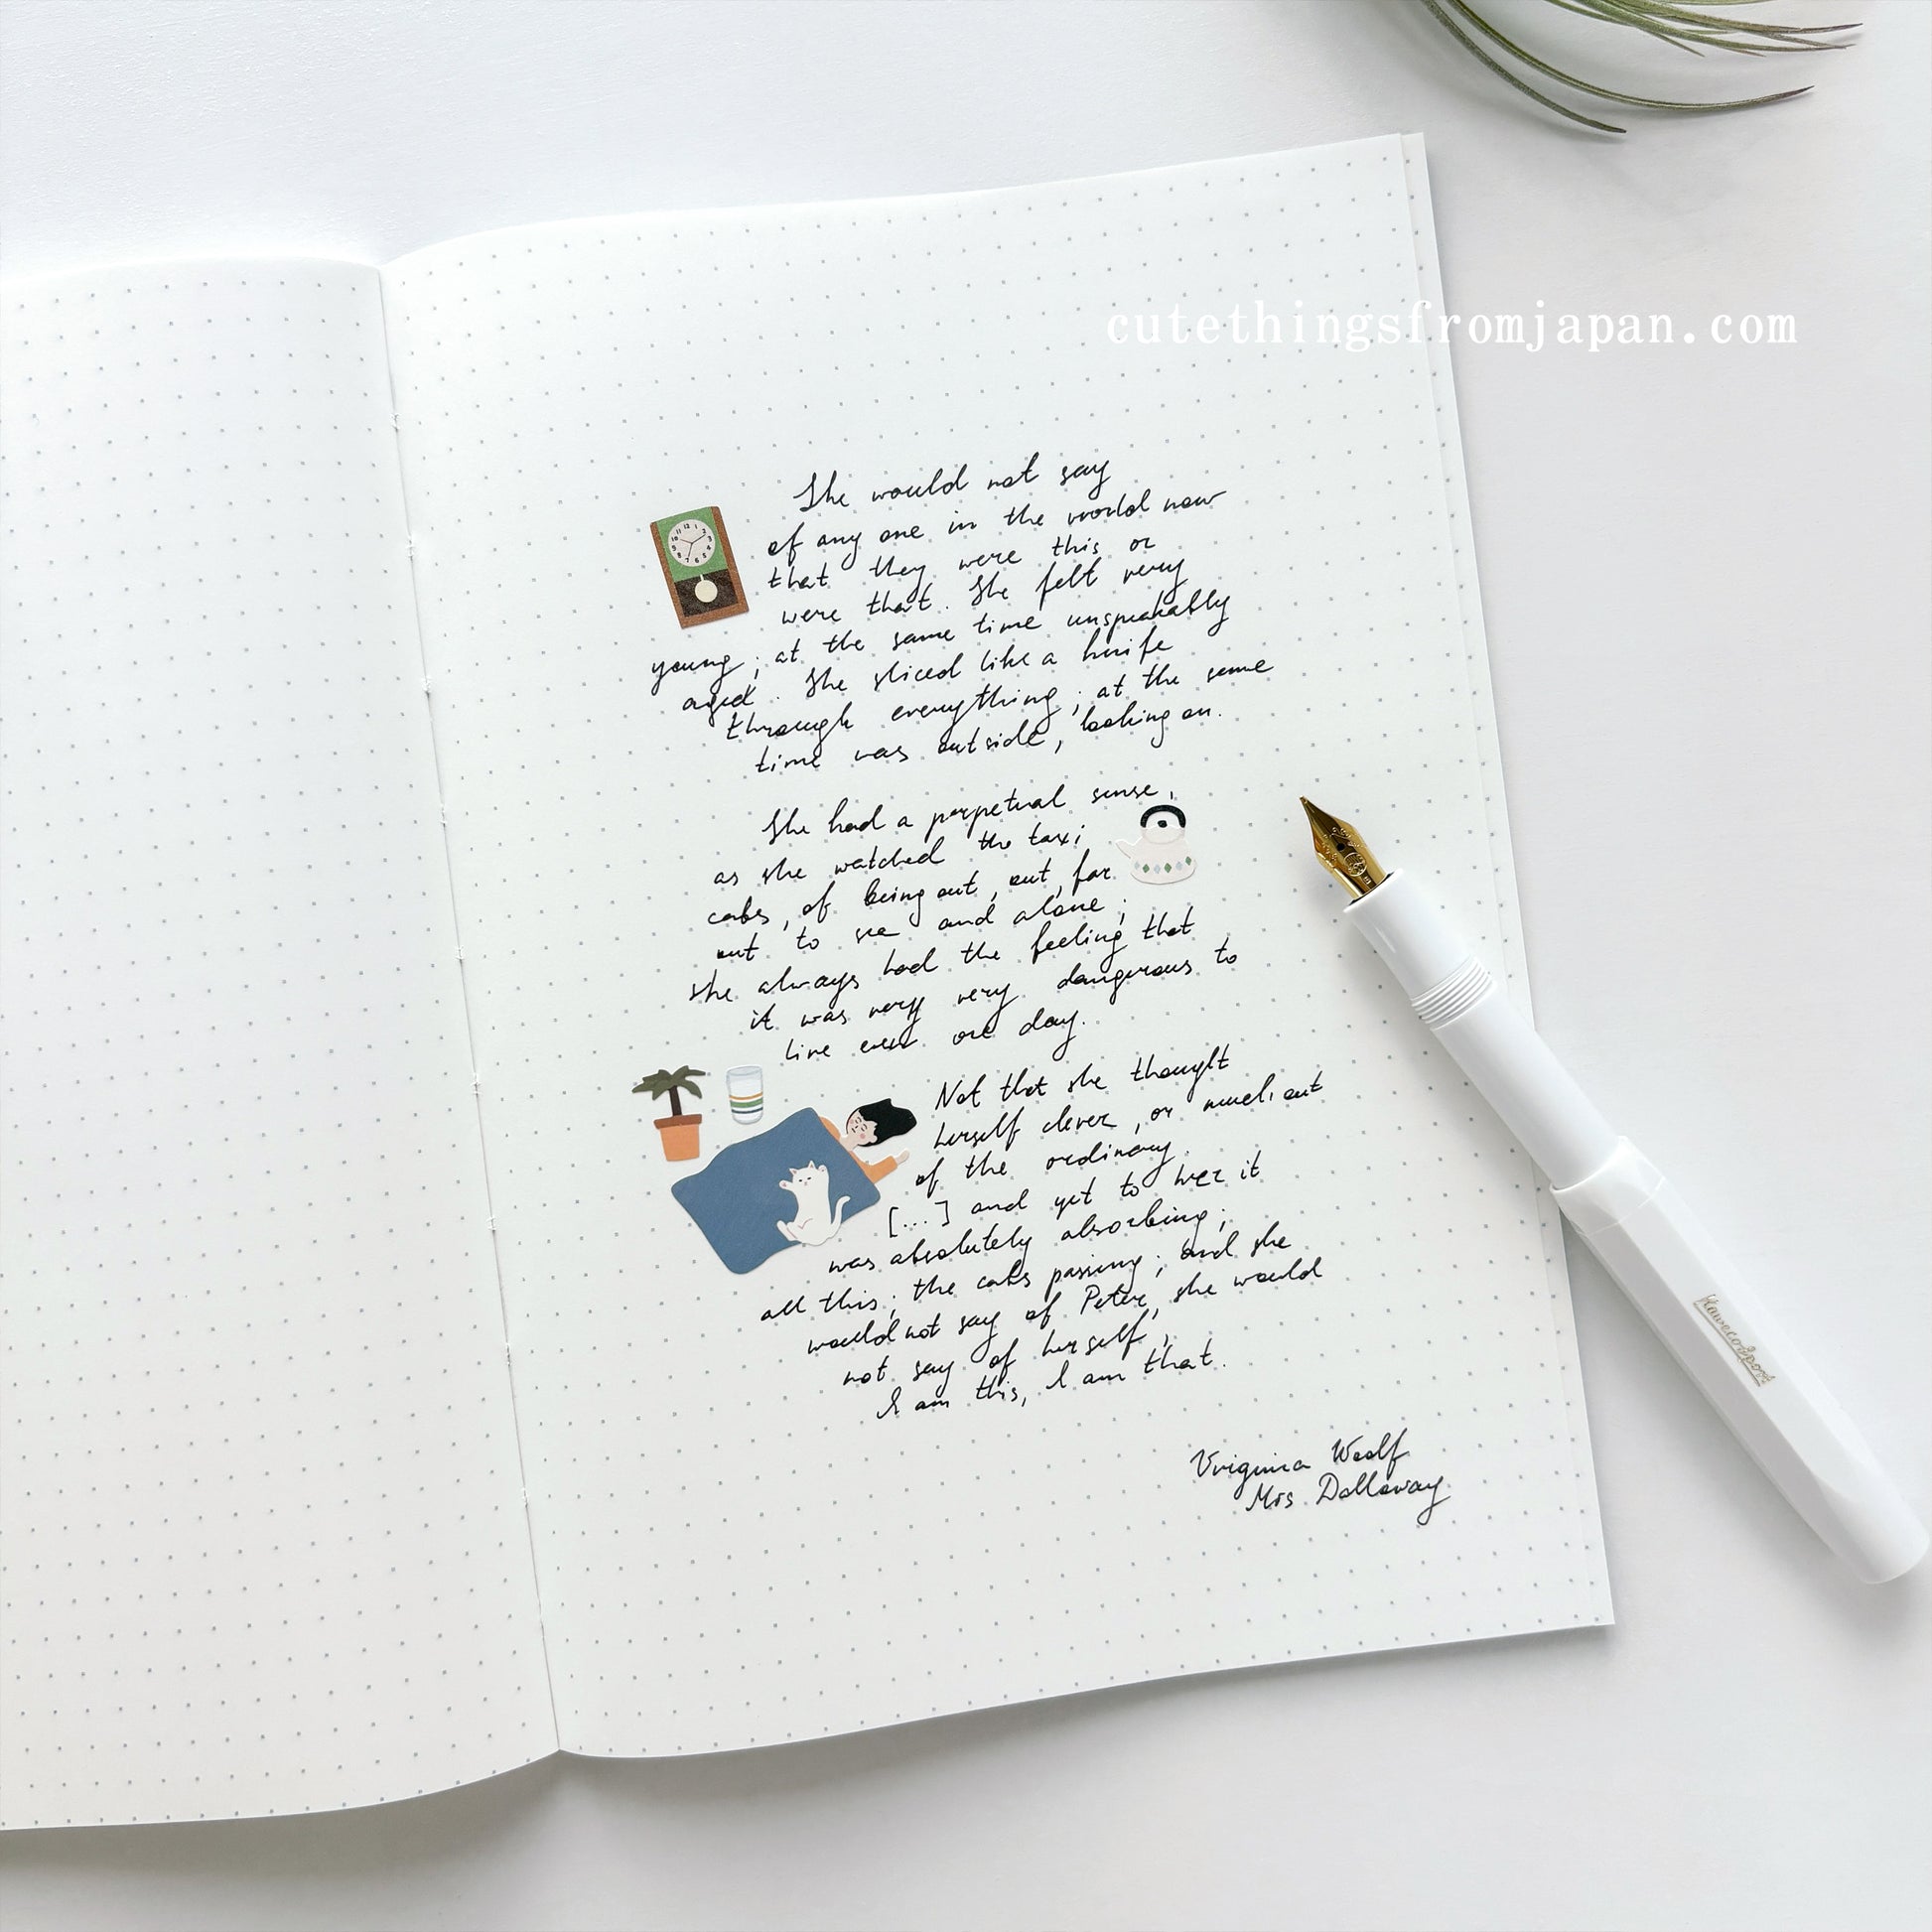 cutethingsfromjapan.com
She would not say
of any one in the world now
that they were this or
were that. She felt very
young; at the same time unspeakably
aged. She sliced like a knife
through everything; at the same
time was outside, looking on.
She had a perpetual sense,
as she watched the taxi
cabs, of being out, out, far
out to sea and alone;
she always had the feeling that
it was very very dangerous to
live even one day.
Not that she thought
herself clever, or much out
of the ordinary.
[...] and yet to her it
was absolutely absorbing;
all this; the cabs passing; and she
would not say of Peter, she would
not say of herself,
I am this, I am that.
Virginia Woolf
Mrs Dalloway
Kaweco Sport